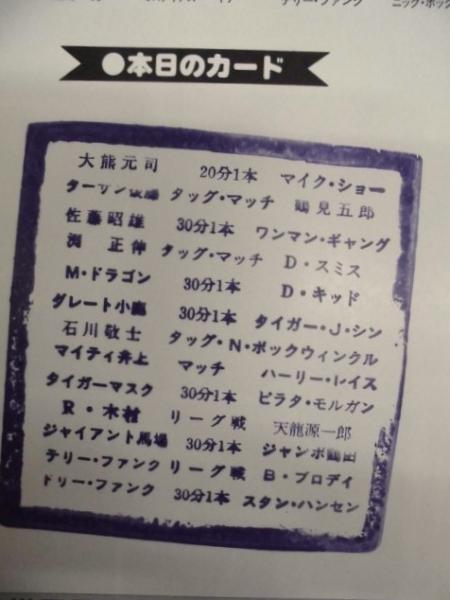 テリー・ファンク
●本日のカード
大熊元司 20分1本 マイク・ショー
ターザン後藤 タッグ・マッチ 鶴見五郎
佐藤昭雄 30分1本 ワンマン・ギャング
渕 正伸 タッグ・マッチ D・スミス
M・ドラゴン 30分1本 D・キッド
グレート小鹿 30分1本 タイガー・J・シン
石川敬士 タッグ・N・ボックウィンクル
マイティ井上 マッチ ハーリー・レイス
タイガーマスク 30分1本 ピラタ・モルガン
R・木村 リーグ戦 天龍源一郎
ジャイアント馬場 30分1本 ジャンボ鶴田
テリー・ファンク リーグ戦 B・ブロディ
ドリー・ファンク 30分1本 スタン・ハンセン